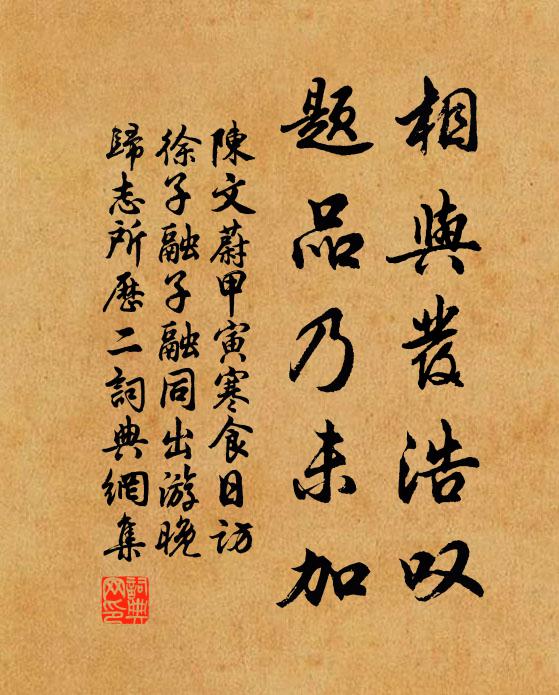 相與發浩叹
題品乃未加
陳文蔚甲寅寒食日訪
徐子融子融同出游晚
歸志所歷二詞典網集
詞典網印